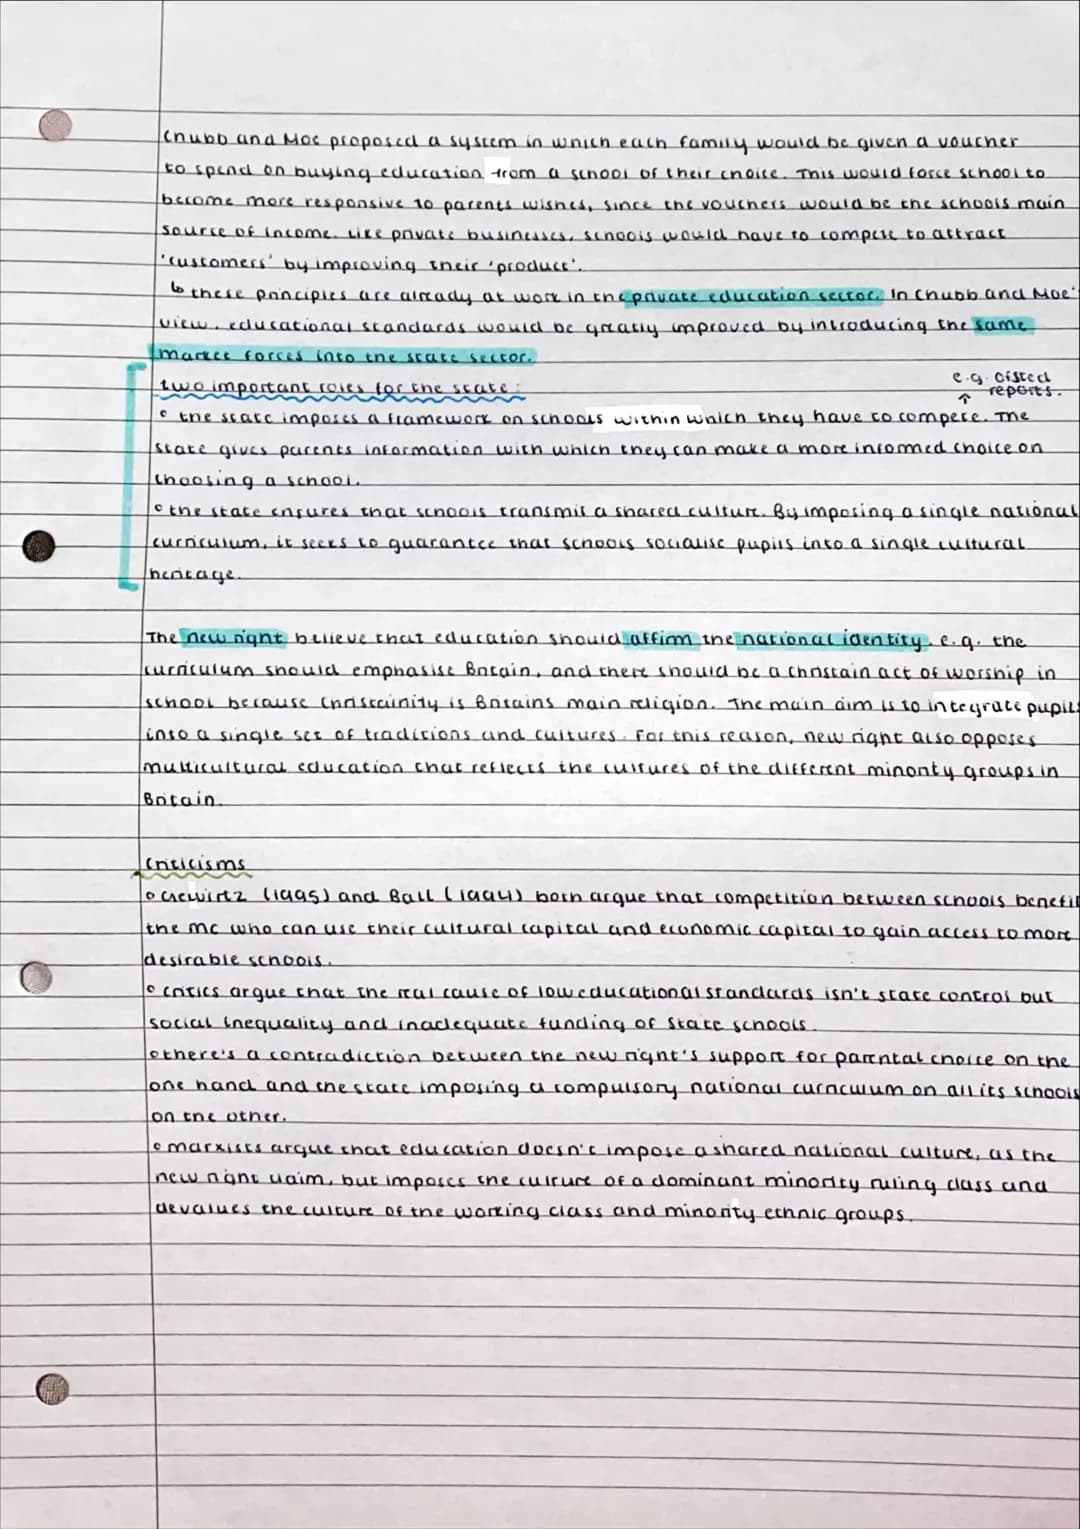 Chubb and Moe proposed a system in which each family would be given a voucher
to spend on buying education from a school of their choice. This would force school to
become more responsive to parents wishes, since the vouchers would be the schools main
source of income. Like private businesses, schools would have to compete to attract
'customers' by improving their 'product'.
↳ these principles are already at work in the private education sector. In Chubb and Moe'
view, educational standards would be greatly improved by introducing the same
market forces into the state sector.
two important roles for the state:
e.g. ofsted
reports.
↑
◦ the state imposes a framework on schools within which they have to compete. The
state gives parents information with which they can make a more informed choice on
choosing a school.
◦ the state ensures that schools transmit a shared culture. By imposing a single national
curriculum, it seeks to guarantee that schools socialise pupils into a single cultural
heritage.
The new right believe that education should affirm the national identity. e.g. the
curriculum should emphasise Britain, and there should be a christain act of worship in
school because christainity is Britains main religion. The main aim is to integrate pupils
into a single set of traditions and cultures. For this reason, new right also opposes
multicultural education that reflects the cultures of the different minority groups in
Britain.
Criticisms
◦ Gewirtz (1995) and Ball (1994) both argue that competition between schools benefit
the mc who can use their cultural capital and economic capital to gain access to more
desirable schools.
◦ critics argue that the real cause of low educational standards isn't state control but
social inequality and inadequate funding of state schools.
◦ there's a contradiction between the new right's support for parental choice on the
one hand and the state imposing a compulsory national curriculum on all its schools
on the other.
◦ marxists argue that education doesn't impose a shared national culture, as the
new right claim, but imposes the culture of a dominant minority ruling class and
devalues the culture of the working class and minority ethnic groups.